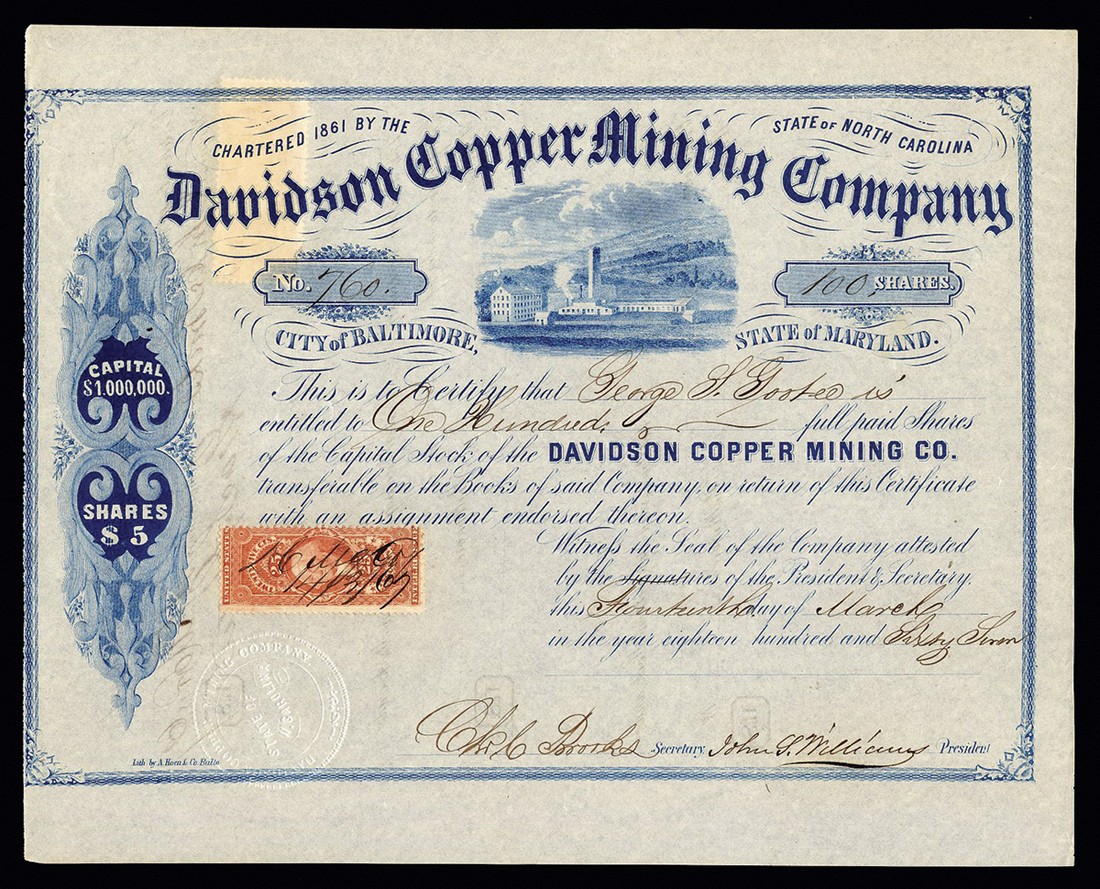 CHARTERED 1861 BY THE STATE OF NORTH CAROLINA
Davidson Copper Mining Company
No. 760. 100, SHARES.
CITY of BALTIMORE, STATE of MARYLAND.
CAPITAL
$1.000,000.
SHARES
$5
This is to Certify that George S. is
entitled to One Hundred full paid Shares
of the Capital Stock of the DAVIDSON COPPER MINING CO.
transferable on the Books of said Company, on return of this Certificate
with an assignment endorsed thereon.
Witness the Seal of the Company attested
by the signatures of the President & Secretary,
this Fourteenth day of March
in the year eighteen hundred and Sixty Seven
UNITED STATES
25 25
Brooks Secretary. John S. Williams President
MINING COMPANY
STATE OF
CAROLINA
Lith by A. Hoen & Co. Balto